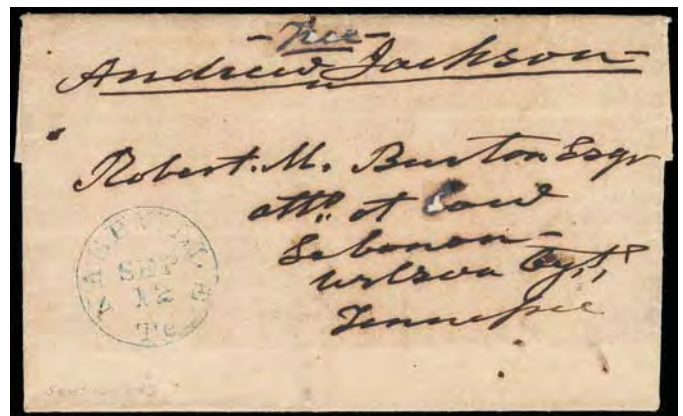 - Free -
Andrew Jackson
Robert. M. Burton Esqr
att. at Law
Lebanon -
Wilson Cty,
Tennessee
NASHVILLE
SEP
12
Te